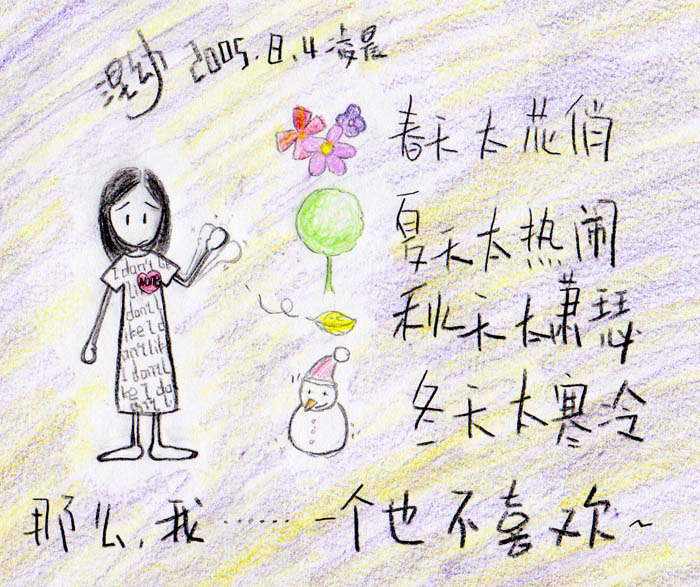 2005.8.4凌晨
春天太花俏
夏天太热闹
秋天太萧瑟
冬天太寒冷
I don't
like I d
I don't
NONE
那么,我……一个也不喜欢~